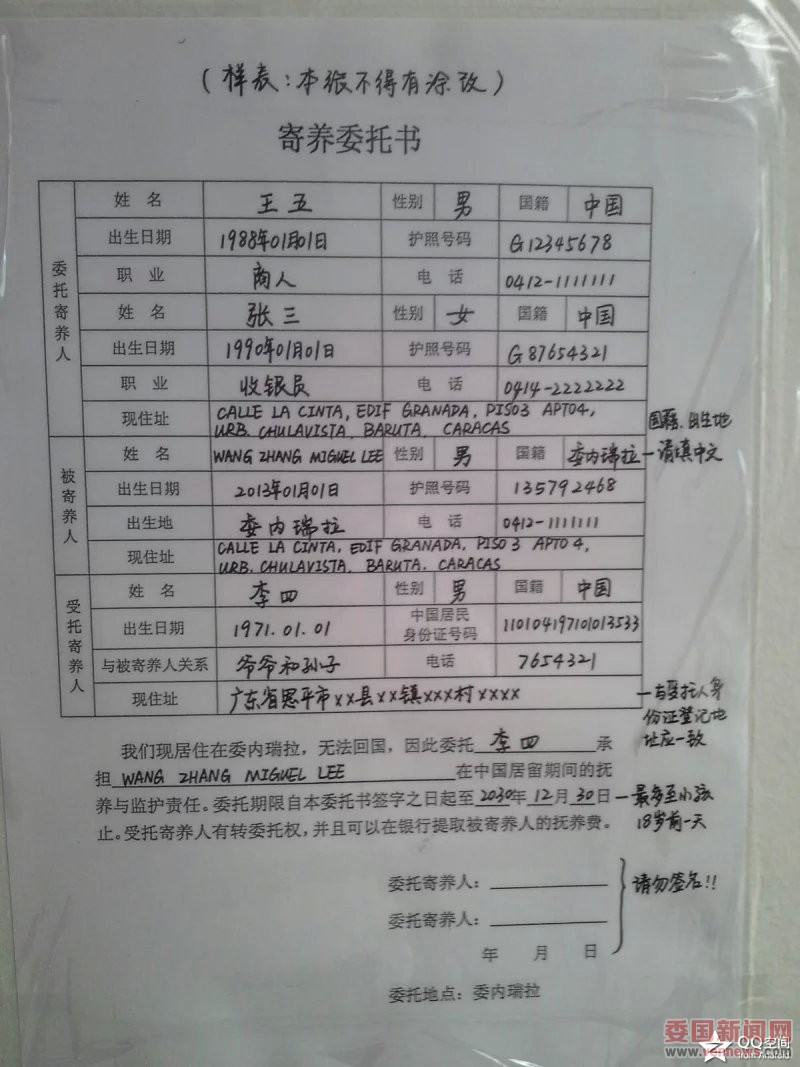 （样表：本张不得有涂改）
寄养委托书
委托寄养人
姓 名 王五 性别 男 国籍 中国
出生日期 1988年01月01日 护照号码 G12345678
职 业 商人 电 话 0412-1111111
姓 名 张三 性别 女 国籍 中国
出生日期 1990年01月01日 护照号码 G87654321
职 业 收银员 电 话 0414-2222222
现住址 CALLE LA CINTA, EDIF GRANADA, PISO3 APTO4,
URB. CHULAVISTA, BARUTA, CARACAS
国籍、出生地
被寄养人
姓 名 WANG ZHANG MIGUEL LEE 性别 男 国籍 委内瑞拉 —请填中文
出生日期 2013年01月01日 护照号码 135792468
出生地 委内瑞拉 电 话 0412-1111111
现住址 CALLE LA CINTA, EDIF GRANADA, PISO 3 APTO 4,
URB. CHULAVISTA, BARUTA, CARACAS
受托寄养人
姓 名 李四 性别 男 国籍 中国
出生日期 1971.01.01 中国居民身份证号码 110104197101013533
与被寄养人关系 爷爷和孙子 电话 7654321
现住址 广东省恩平市××县××镇×××村××××
—与受托人身
份证登记地
址应一致
我们现居住在委内瑞拉，无法回国，因此委托 李四 承
担 WANG ZHANG MIGUEL LEE 在中国居留期间的抚
养与监护责任。委托期限自本委托书签字之日起至2030年12月30日 —最多至小孩
止。受托寄养人有转委托权，并且可以在银行提取被寄养人的抚养费。 18岁前一天
委托寄养人：
请勿签名!!
委托寄养人：
年 月 日
委托地点：委内瑞拉
委国新闻网
www.vennews.com
QQ空间
from Android